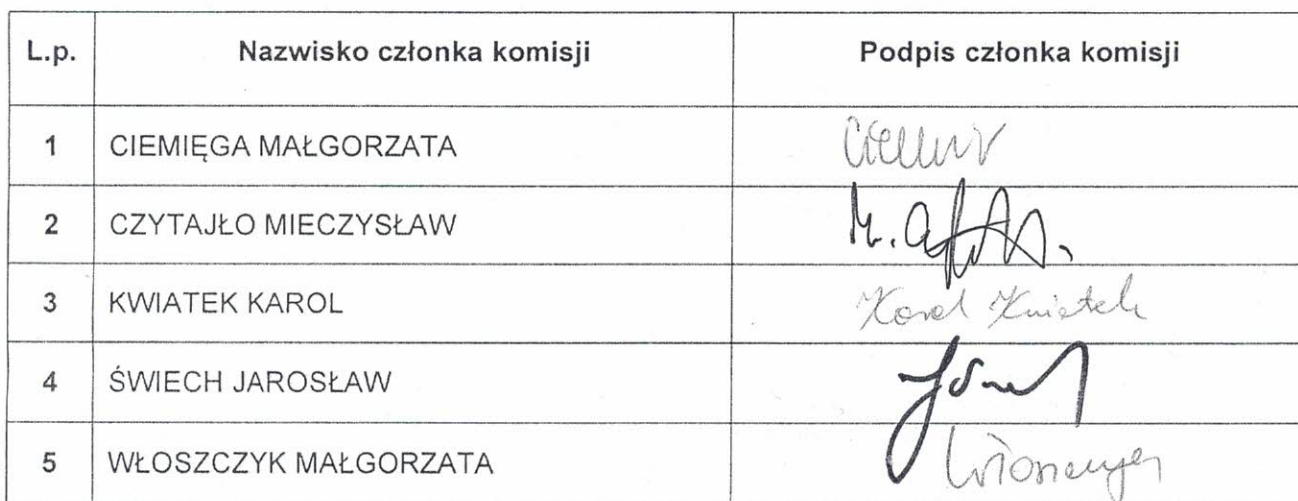 L.p. Nazwisko członka komisji Podpis członka komisji
1 CIEMIĘGA MAŁGORZATA
2 CZYTAJŁO MIECZYSŁAW M.
3 KWIATEK KAROL Karol Kwiatek
4 ŚWIECH JAROSŁAW
5 WŁOSZCZYK MAŁGORZATA